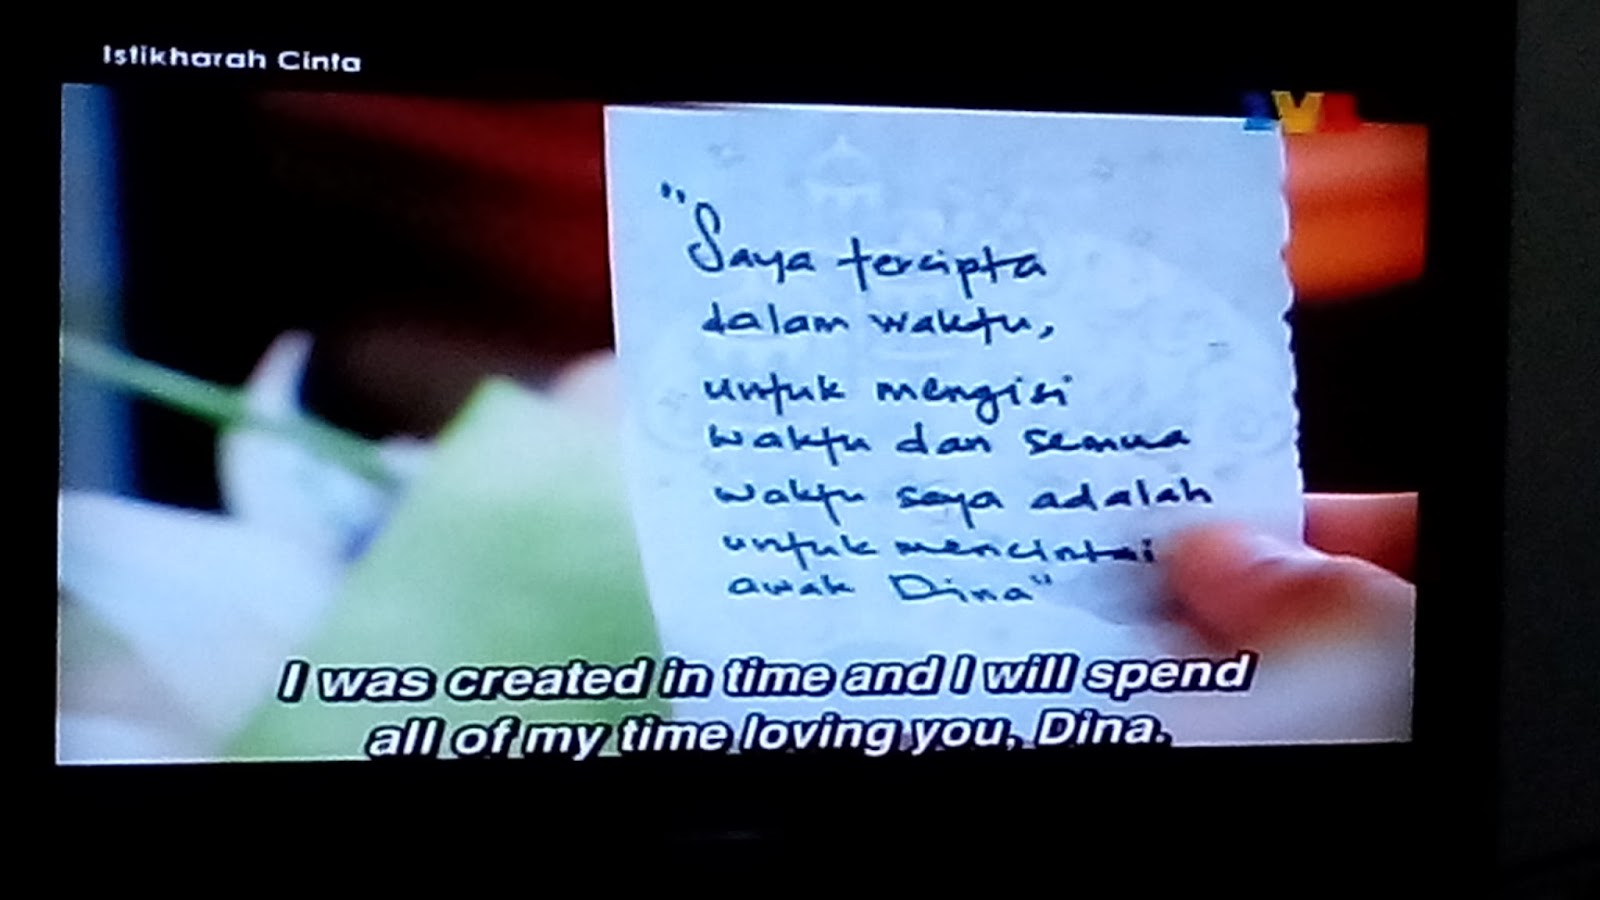 Istikharah Cinta
"Saya tercipta
dalam waktu,
untuk mengisi
waktu dan semua
waktu saya adalah
untuk mencintai
awak Dina"
I was created in time and I will spend
all of my time loving you, Dina.